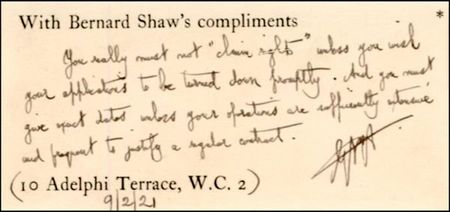 With Bernard Shaw's compliments *
You really must not "claim rights" unless you wish
your applications to be turned down promptly. And you must
give exact dates unless your operations are sufficiently extensive
and frequent to justify a regular contract.
(10 Adelphi Terrace, W.C. 2)
9/2/21